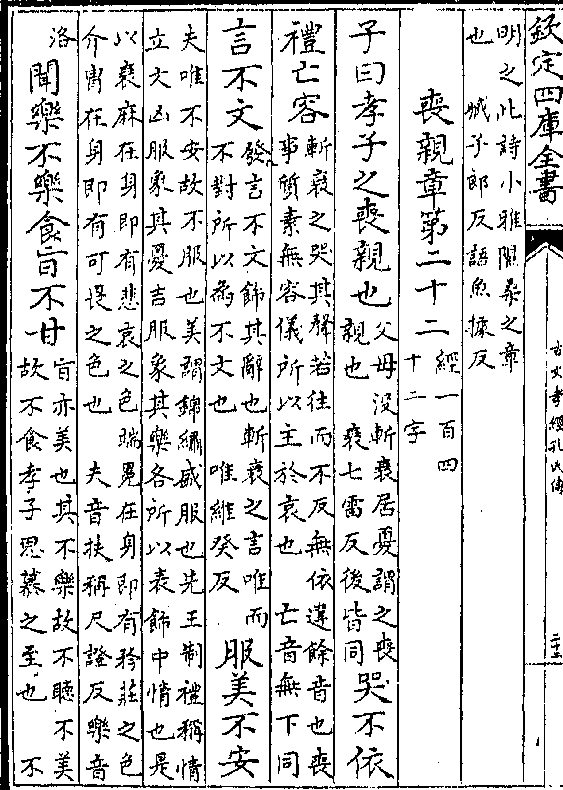 欽定四庫全書
古文孝經孔氏傳
二十三
明之此詩小雅隰桑之章
也　臧子郎反語魚據反
喪親章第二十二
經一百四
十二字
子曰孝子之喪親也
父母没斬衰居憂謂之喪
親也　衰七雷反後皆同
哭不依
禮亡容
斬衰之哭其聲若往而不反無依違餘音也喪
事質素無容儀所以主於哀也　亡音無下同
言不文
發言不文飾其辭也斬衰之言唯而
不對所以爲不文也　唯維癸反
服美不安
夫唯不安故不服也美謂錦繡盛服也先王制禮稱情
立文凶服象其憂吉服象其樂各所以表飾中情也是
以衰麻在身即有悲哀之色端冕在身即有矜莊之色
介冑在身即有可畏之色也　夫音扶稱尺證反樂音
洛
聞樂不樂食旨不甘
旨亦美也其不樂故不聽不美
故不食孝子思慕之至也　不